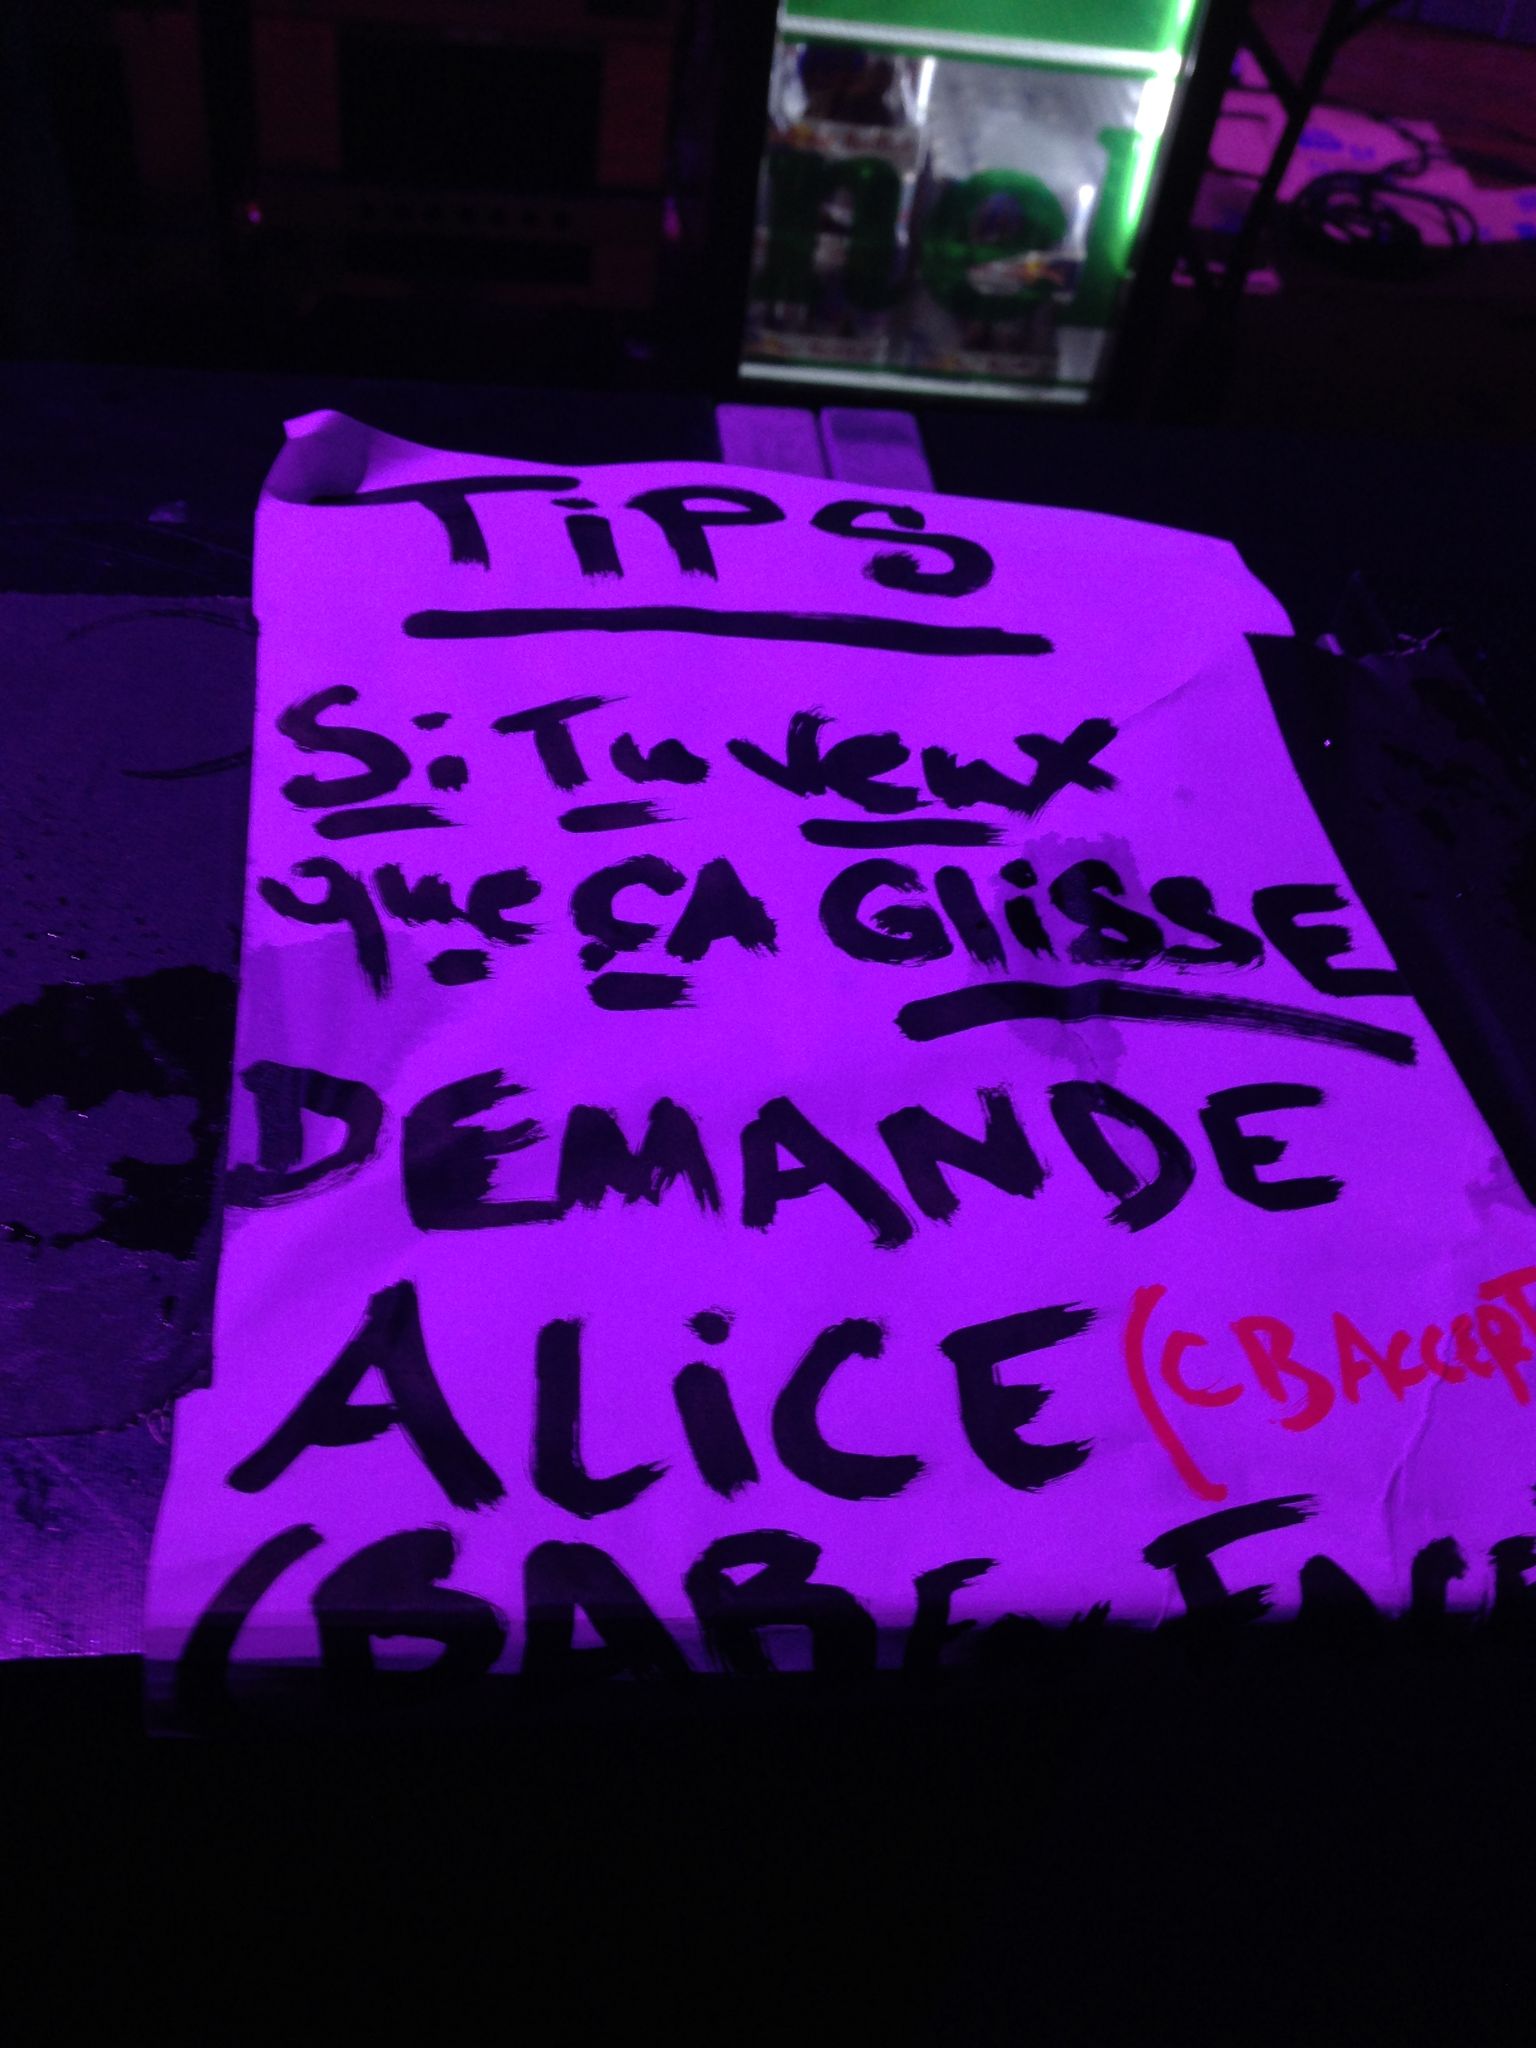 nel
TiPS
Si Tu veux
que ÇA GliSSE
DEMANDE
ALiCE (CB ACCEPT
(BABY FACE